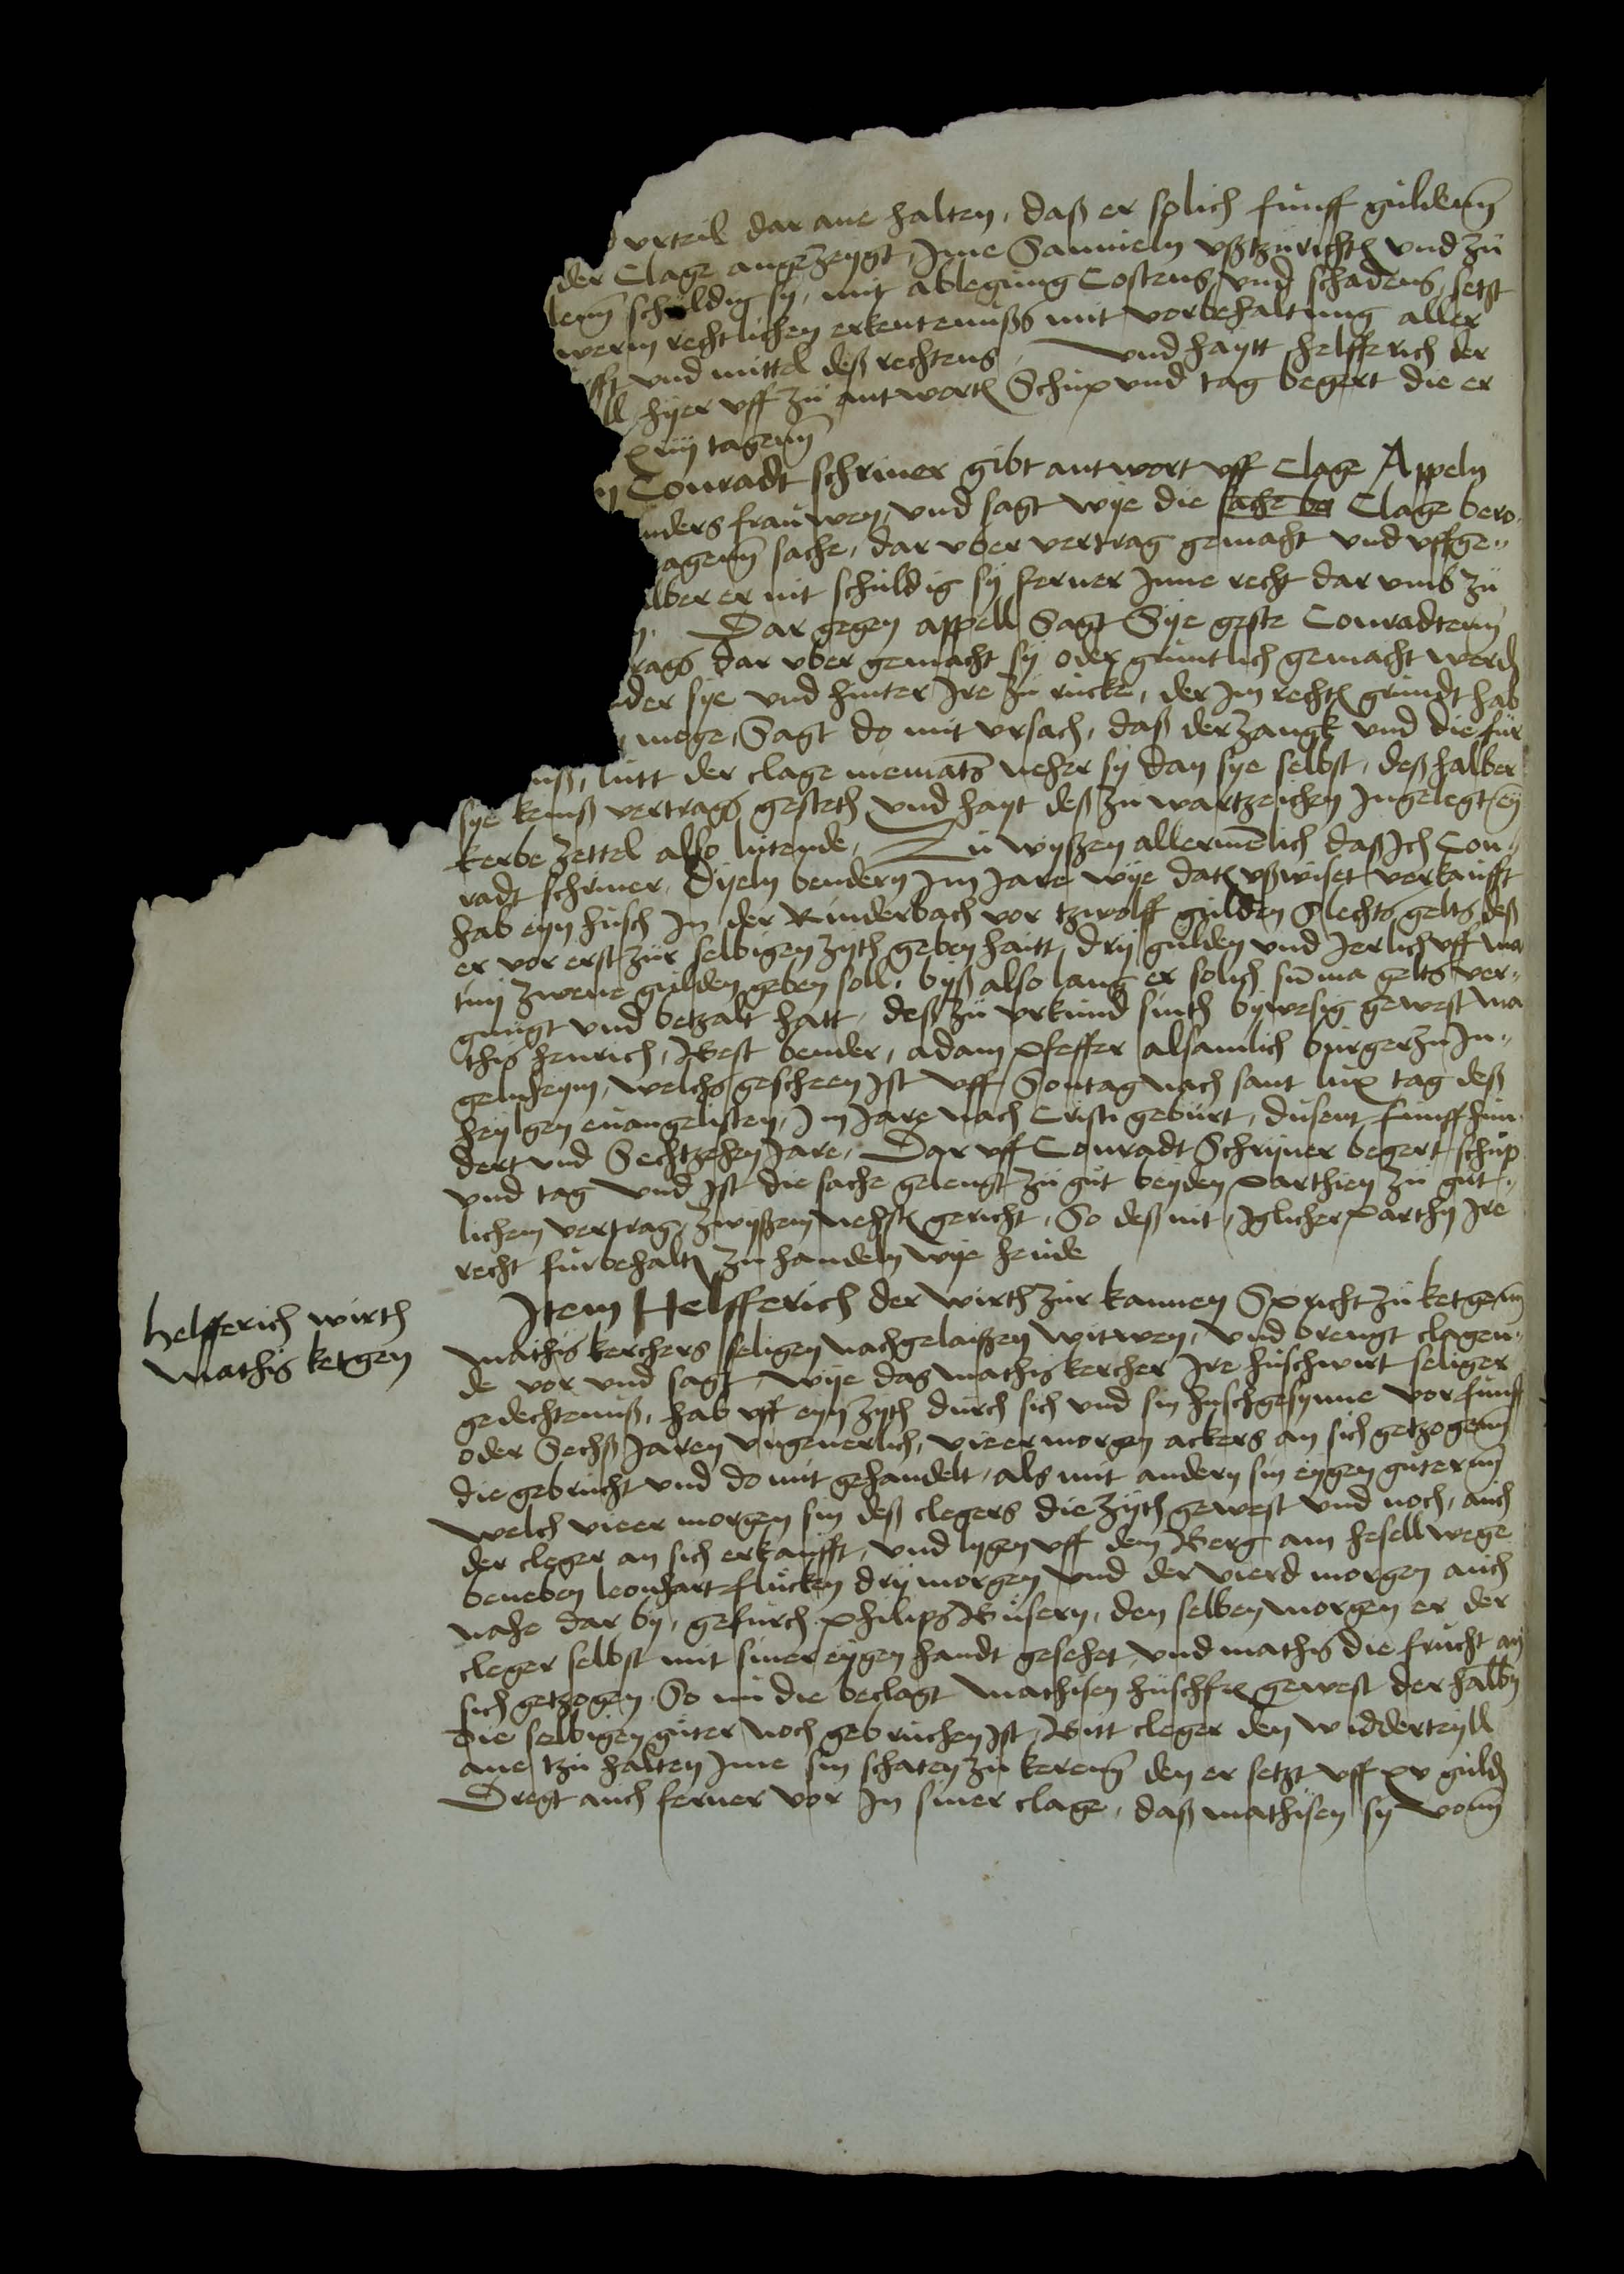 urteil dar ane halten, daß er solich funff guldenn
der Clage angezeygt, Ime Samueln ußtzurichten und zu
lenn schuldig sy, mit ablegung Costens und schadens, setzt
werm rechtlichen erkentenußs mit vorbehaltung aller
und mittel deß rechtens, und haytt helfferich der
hyer uff zu antworten Schup und tag begert die er
xiiij tagenn
Conradt schriner gibt antwort uff Clage Appeln
nders frauwen, und sagt wye die sache be Clage bero
agenn sache, dar uber vertrag gemacht und uffge-
lber er nit schuldig sy ferner Inne recht dar umb zu
Dar gegen appell Sagt Sye geste Conradtenn
rags dar uber gemacht sy oder gruntlich gemacht werden
der sye und hinter Ire zu rucke, der Im rechten grundt hab
moge, Sagt do mit ursach, daß der zangk und die fur
nß, lutt der clage niemats neher sy dan sye selbst, deßhalber
sye keinß vertrags gesteth und hayt deß zu wartzeichen Ingelegt ey
kerbe zettel also lutende, Zu wyßen allermelich daß Ich Con-
radt schriner, Dyeln bendern Im Jare wye dat ußwiset verkaufft
hab eyn husch In der Rinderbach vor tzwolff gulden Slechts gelts deß
er vor erst zur selbigen zyth geben haitt drij gulden und Jerlich uff mar
tini zwene gulden geben soll, byß also lang er solich suma gelts ver-
gnugt und betzalt hatt, deß zu urkund sinth bywesig gewest ma
this henrich, Best bender, adam pfeffer alsamlich burger zu In-
gelnheym, welchs gescheen Ist uff Sontag nach sant lux tag deß
heylgen euangelisten, Im Jare nach Cristi geburt, dusent funffhun-
dert und Sechtzehen Jare, Dar uff Conradt Schryner begert schup
und tag und Ist die sache gelengt zu gut beyden parthien zu gut-
lichem vertrag, zwyßem nehsten gericht, So deß nit, Iglicher parthy Ire
recht furbehalten zu handeln wye heude
Item Helfferich der wirth zur kannen Spricht zu ketgenn
mathis kerchers seligen nachgelaißen witwen, und brengt clagen-
de vor und sagt, wye das mathis kercher Ire huschwirt seliger
gedechtenuß, hab uff eyn zyth durch sich und sin huschgesynne vor funff
oder Sechß Jaren ungeuerlich, vieer morgen ackers an sich getzogenn
die gebrucht und do mit gehandelt, als mit andern sin eygen guternn
welch vieer morgen sin deß clegers die zyth gewest und noch, auch
der cleger an sich erkaufft, und lygen uff dem Berg am hesellwege
beneben leonhart flucken drij morgen und der vierd morgen auch
nahe dar by, gefurch philips Busern, den selben morgen er der
cleger selbst mit siner eygen handt gesehet, und mathis die frucht an
sich getzogen. So nu die beclagt mathisen huschfrauwe gewest der halben
die selbigen guter noch gebruchen Ist, Bitt cleger den widderteyll
ane tzu halten Ime sin schaten zu kerenn den er setzt uff xv gulden
Dregt auch ferner vor In siner clage, daß mathisen sy vonn
helfferich wirth
mathis ketgen